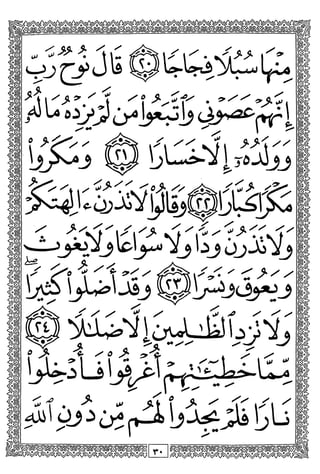 مِنْهَا سُبُلًا فِجَاجًا ٢٠ قَالَ نُوحٌ رَّبِّ
إِنَّهُمْ عَصَوْنِي وَٱتَّبَعُوا۟ مَن لَّمْ يَزِدْهُ مَالُهُۥ
وَوَلَدُهُۥٓ إِلَّا خَسَارًا ٢١ وَمَكَرُوا۟
مَكْرًا كُبَّارًا ٢٢ وَقَالُوا۟ لَا تَذَرُنَّ ءَالِهَتَكُمْ
وَلَا تَذَرُنَّ وَدًّا وَلَا سُوَاعًا وَلَا يَغُوثَ
وَيَعُوقَ وَنَسْرًا ٢٣ وَقَدْ أَضَلُّوا۟ كَثِيرًا ۖ
وَلَا تَزِدِ ٱلظَّٰلِمِينَ إِلَّا ضَلَٰلًا ٢٤
مِّمَّا خَطِيٓـَٰٔتِهِمْ أُغْرِقُوا۟ فَأُدْخِلُوا۟
نَارًا فَلَمْ يَجِدُوا۟ لَهُم مِّن دُونِ ٱللَّهِ
٣٠